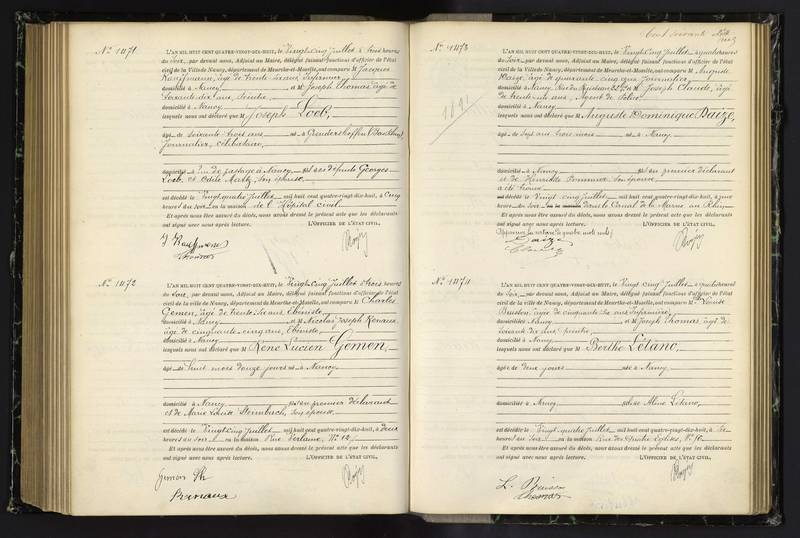 Nº 1471
L'AN MIL HUIT CENT QUATRE-VINGT-DIX-HUIT, le Vingt Cinq Juillet à trois heures
du Soir, par devant nous, Adjoint au Maire, délégué faisant fonctions d'officier de l'état
civil de la Ville de Nancy, département de Meurthe-et-Moselle, ont comparu M Jacques
Kauffmann, âgé de trente ans, Infirmier
domicilié à Nancy et M Joseph Thomas, âgé de
Soixante dix ans, peintre
domicilié à Nancy
lesquels nous ont déclaré que M Joseph Loeb,
âgé de soixante trois ans né à Gundershoffen (Bas Rhin)
Journalier, célibataire,
domicilié à de passage à Nancy fils des défunts Georges
Loeb et Odile Martz, son épouse
est décédé le Vingt quatre Juillet mil huit cent quatre-vingt-dix-huit, à Cinq
heures du Soir en la maison de l'Hôpital civil.
Et après nous être assuré du décès, nous avons dressé le présent acte que les déclarants
ont signé avec nous après lecture. L'OFFICIER DE L'ÉTAT CIVIL,
J Kauffmann
Thomas
Nº 1472
L'AN MIL HUIT CENT QUATRE-VINGT-DIX-HUIT, le Vingt Cinq Juillet à trois heures
du Soir, par devant nous, Adjoint au Maire, délégué faisant fonctions d'officier de l'état
civil de la ville de Nancy, département de Meurthe-et-Moselle, ont comparu M Charles
Gemen, âgé de trente six ans, Ébéniste
domicilié à Nancy et M Nicolas Joseph Renaux,
âgé de cinquante cinq ans, Ébéniste
domicilié à Nancy
lesquels nous ont déclaré que M René Lucien Gemen,
âgé de huit mois douze jours né à Nancy
domicilié à Nancy fils du premier déclarant
et de Marie Louise Steinbach, son épouse
est décédé le Vingt Cinq Juillet mil huit cent quatre-vingt-dix-huit, à deux
heures du soir en la maison Rue Verlaine, Nº 12
Et après nous être assuré du décès, nous avons dressé le présent acte que les déclarants
ont signé avec nous après lecture. L'OFFICIER DE L'ÉTAT CIVIL,
Gemen Ch
Renaux
Cent soixante
Nº 1473
L'AN MIL HUIT CENT QUATRE-VINGT-DIX-HUIT, le Vingt Cinq Juillet à quatre heures
du Soir, par devant nous, Adjoint au Maire, délégué faisant fonctions d'officier de l'état
civil de la Ville de Nancy, département de Meurthe-et-Moselle, ont comparu M Auguste
Daize, âgé de quarante cinq ans Journalier
domicilié à Nancy, Rue du Ruisseau et M Joseph Claude, âgé
de trente un ans, Agent de Police
domicilié à Nancy
lesquels nous ont déclaré que M Auguste Dominique Daize,
âgé de Sept ans trois mois né à Nancy
domicilié à Nancy fils du premier déclarant
et de Henriette son épouse
a été trouvé
le Vingt Cinq Juillet mil huit cent quatre-vingt-dix-huit, à une
heure du Soir dans le Canal de la Marne au Rhin
Et après nous être assuré du décès, nous avons dressé le présent acte que les déclarants
ont signé avec nous après lecture. L'OFFICIER DE L'ÉTAT CIVIL,
Daize
Claude
Nº 1474
L'AN MIL HUIT CENT QUATRE-VINGT-DIX-HUIT, le Vingt Cinq Juillet à quatre heures
du Soir, par devant nous, Adjoint au Maire, délégué faisant fonctions d'officier de l'état
civil de la ville de Nancy, département de Meurthe-et-Moselle, ont comparu M Louise
Buisson, âgée de cinquante six ans Infirmière,
domiciliée à Nancy et M Joseph Thomas, âgé de
soixante dix ans, peintre
domicilié à Nancy
lesquels nous ont déclaré que M Berthe Létano,
âgée de deux jours née à Nancy
domiciliée à Nancy fille de Aline Létano,
est décédée le Vingt quatre Juillet mil huit cent quatre-vingt-dix-huit, à Six
heures du Soir en la maison Rue des Quatre Églises, Nº
Et après nous être assuré du décès, nous avons dressé le présent acte que les déclarants
ont signé avec nous après lecture. L'OFFICIER DE L'ÉTAT CIVIL,
L. Buisson
Thomas